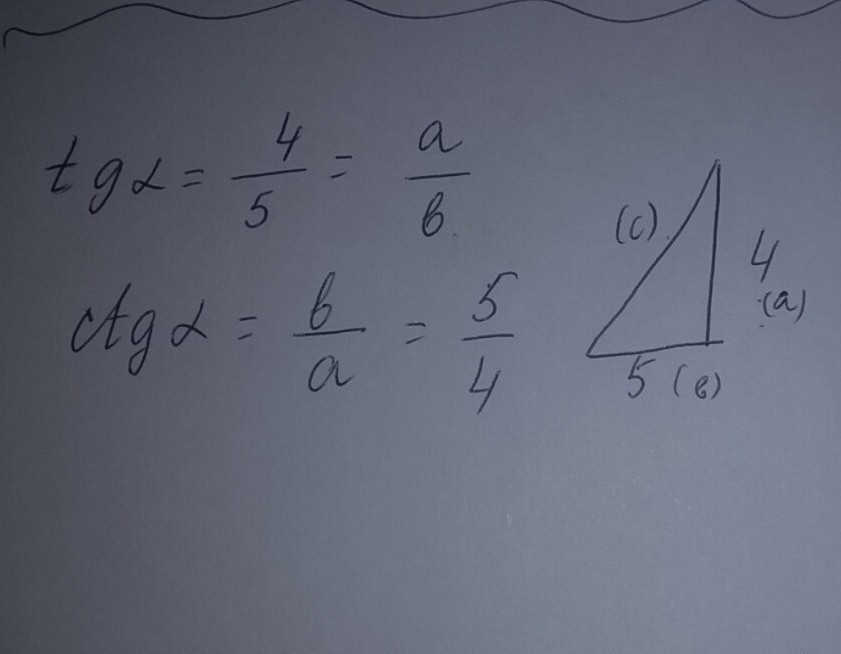 tg α = 4/5 = a/b
ctg α = b/a = 5/4
(c)
4
(a)
5 (b)